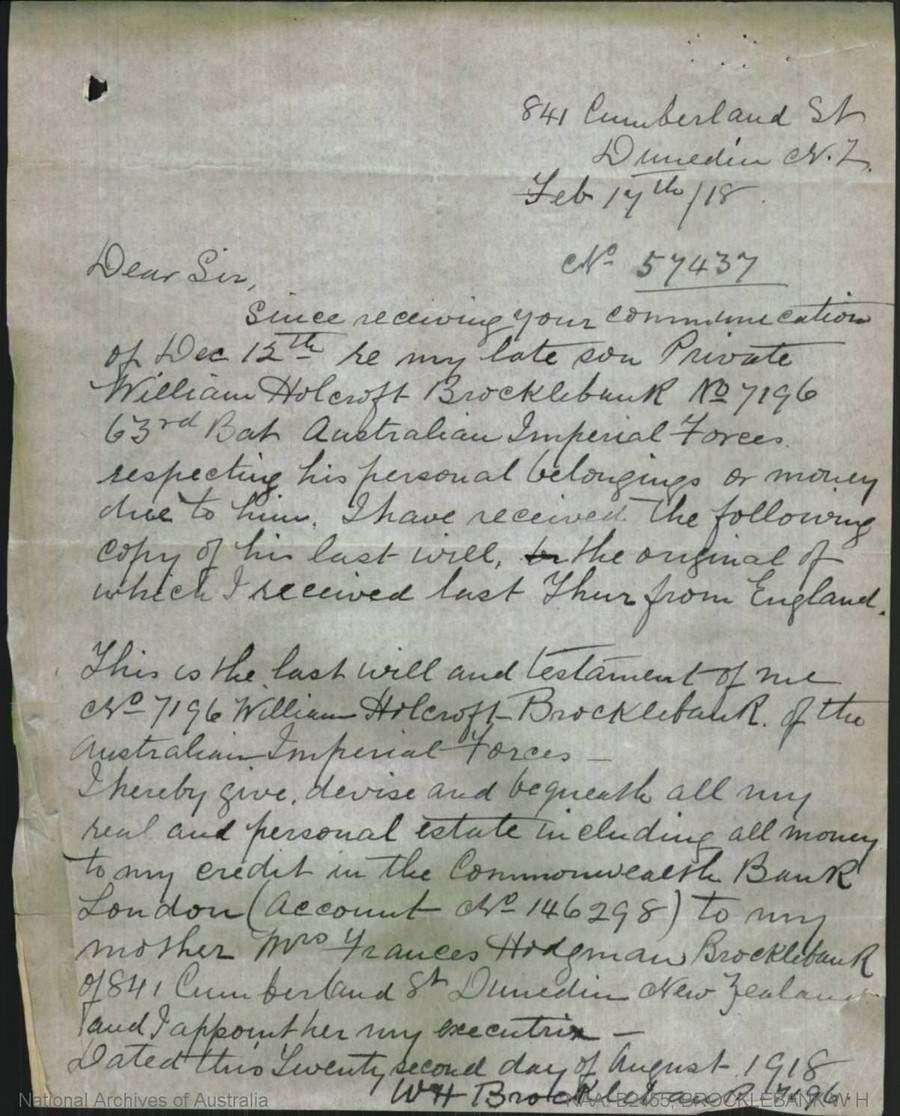 841 Cumberland St
Dunedin N.Z.
Feb 17th/18
No 57437
Dear Sir,
Since receiving your communication
of Dec 12th re my late son Private
William Holcroft Brocklebank No 7196
63rd Bat Australian Imperial Forces.
respecting his personal belongings or money
due to him. I have received the following
copy of his last will, the original of
which I received last Thur from England.
This is the last will and testament of me
No 7196 William Holcroft Brocklebank. of the
Australian Imperial Forces —
I hereby give, devise and bequeath all my
real and personal estate including all money
to my credit in the Commonwealth Bank
London (Account No 146298) to my
mother Mrs Frances Hodgman Brocklebank
of 841 Cumberland St Dunedin New Zealand
and I appoint her my executrix —
Dated this Twenty second day of August 1918
WH Brocklebank 7196
National Archives of Australia
NAA: B2455, BROCKLEBANK W H